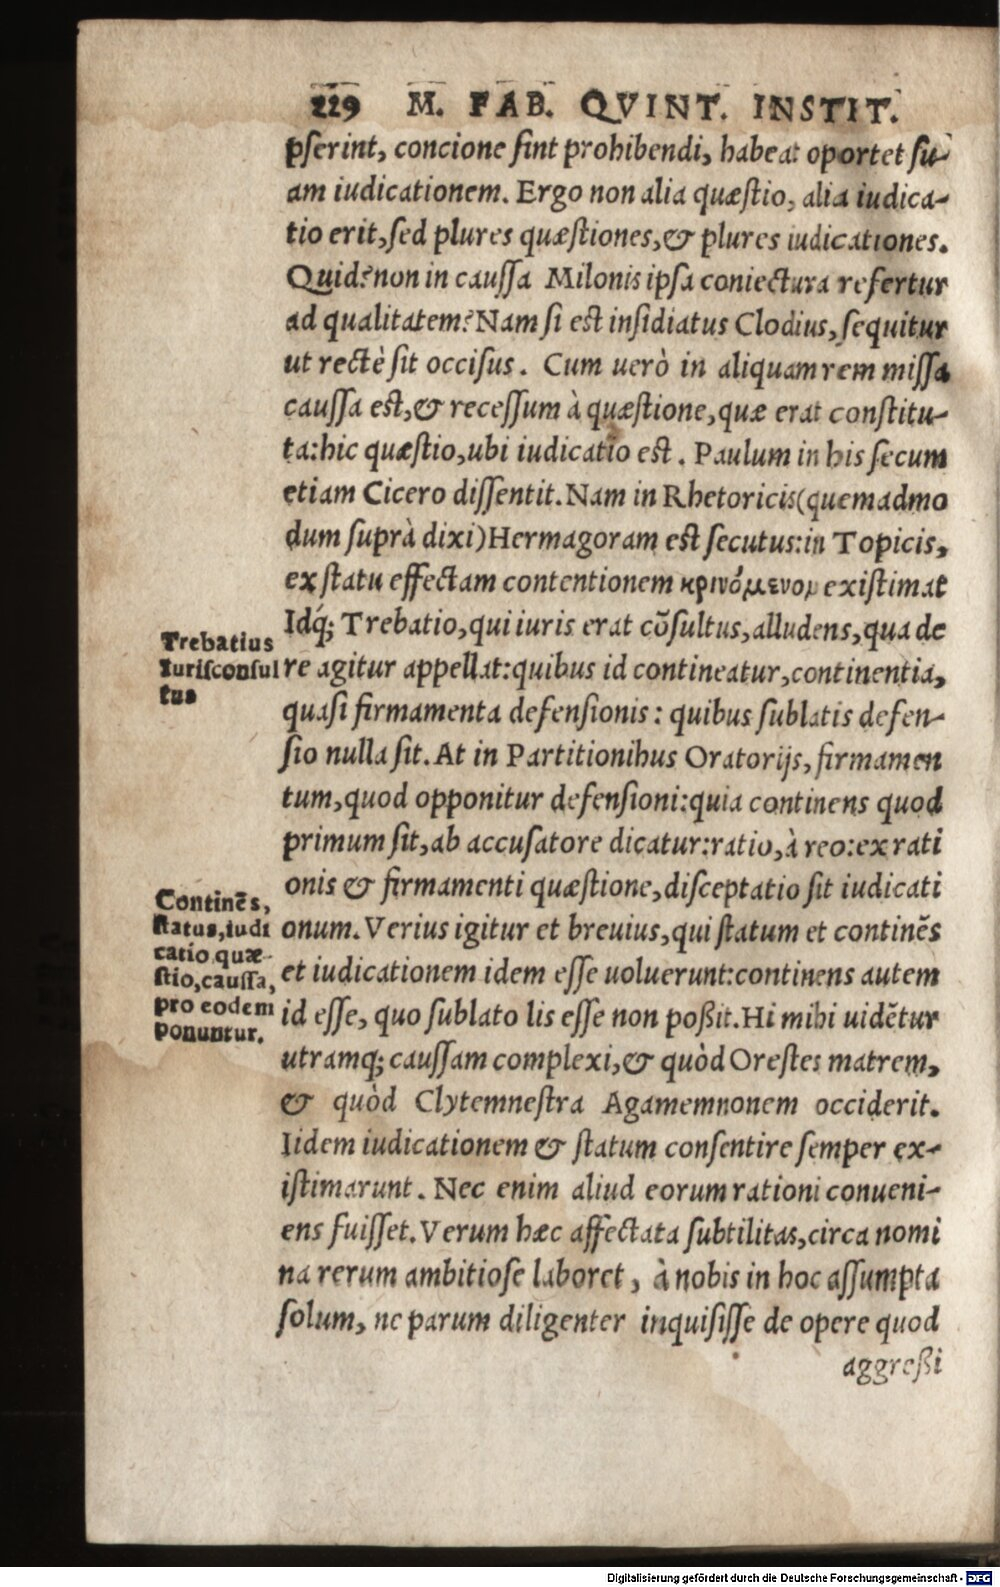 229 M. FAB. QVINT. INSTIT.
pserint, concione sint prohibendi, habeat oportet su-
am iudicationem. Ergo non alia quæstio, alia iudica-
tio erit, sed plures quæstiones, & plures iudicationes.
Quid? non in caussa Milonis ipsa coniectura refertur
ad qualitatem? Nam si est insidiatus Clodius, sequitur
ut rectè sit occisus. Cum uerò in aliquam rem missa
caussa est, & recessum à quæstione, quæ erat constitu-
ta: hic quæstio, ubi iudicatio est. Paulum in his secum
etiam Cicero dissentit. Nam in Rhetoricis (quemadmo
dum suprà dixi) Hermagoram est secutus: in Topicis,
ex statu effectam contentionem κρινόμενον existimat
Idq́; Trebatio, qui iuris erat cōsultus, alludens, qua de
Trebatius
Iurisconsul
tus
re agitur appellat: quibus id contineatur, continentia,
quasi firmamenta defensionis: quibus sublatis defen-
sio nulla sit. At in Partitionibus Oratorijs, firmamen
tum, quod opponitur defensioni: quia continens quod
primum sit, ab accusatore dicatur: ratio, à reo: ex rati
onis & firmamenti quæstione, disceptatio sit iudicati
Continēs,
status, iudi
catio quæ-
stio, caussa,
pro eodem
ponuntur.
onum. Verius igitur et breuius, qui statum et continēs
et iudicationem idem esse uoluerunt: continens autem
id esse, quo sublato lis esse non poßit. Hi mihi uidētur
utramq; caussam complexi, & quòd Orestes matrem,
& quòd Clytemnestra Agamemnonem occiderit.
Iidem iudicationem & statum consentire semper ex-
istimarunt. Nec enim aliud eorum rationi conueni-
ens fuisset. Verum hæc affectata subtilitas, circa nomi
na rerum ambitiose laboret, à nobis in hoc assumpta
solum, ne parum diligenter inquisisse de opere quod
aggreßi
Digitalisierung gefördert durch die Deutsche Forschungsgemeinschaft - DFG